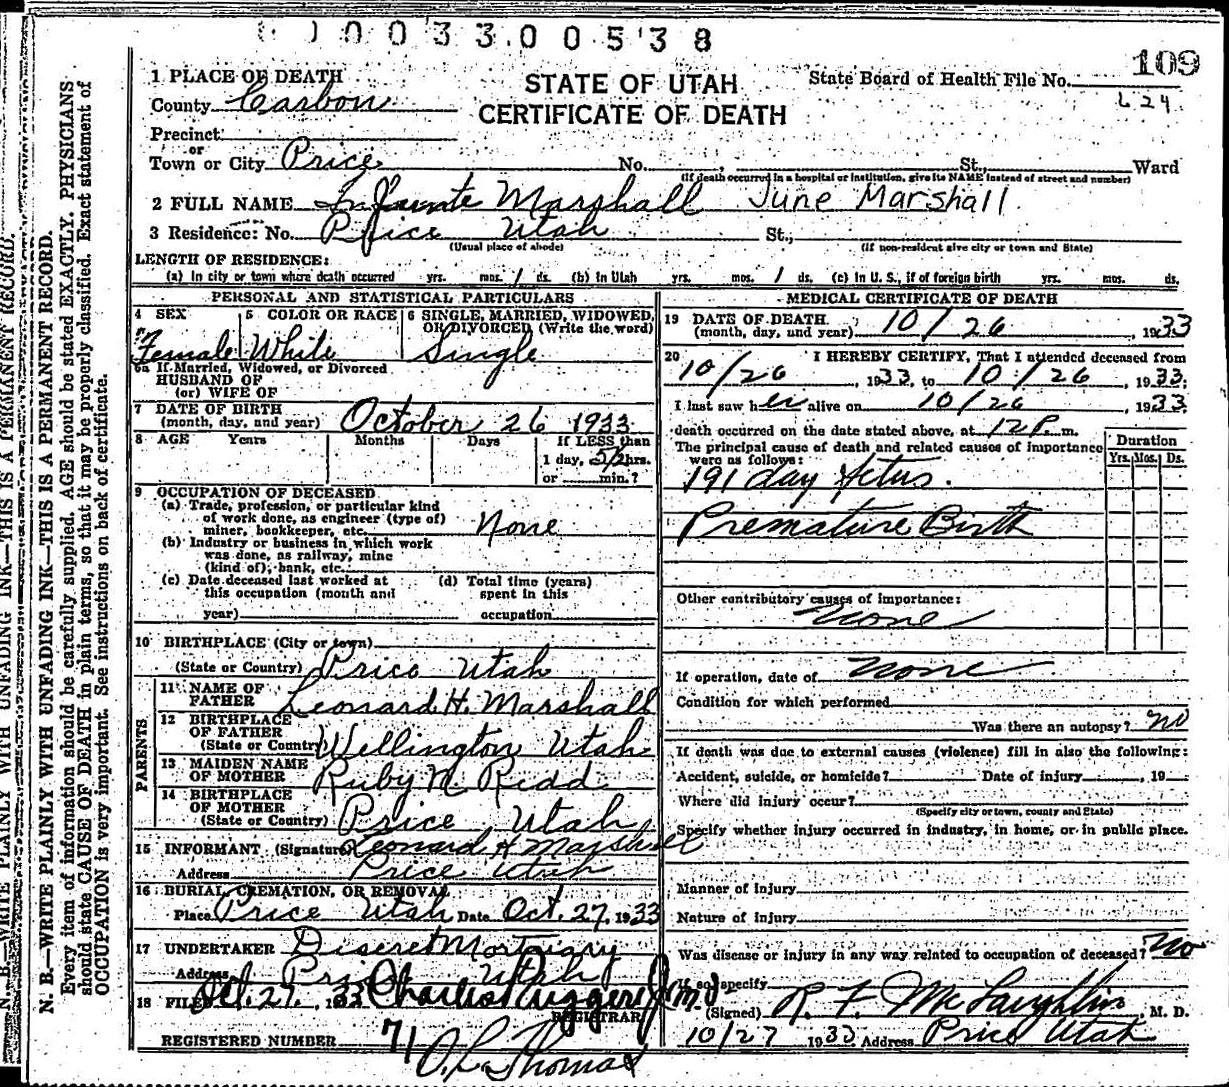 0 0 3 3 0 0 5 3 8
109
1 PLACE OF DEATH
STATE OF UTAH
State Board of Health File No.
L 24
County Carbon
CERTIFICATE OF DEATH
Precinct
or
Town or City Price No. , St., Ward
(If death occurred in a hospital or institution, give its NAME instead of street and number)
2 FULL NAME Infante Marshall June Marshall
3 Residence: No. Price Utah St.,
(Usual place of abode) (If non-resident give city or town and State)
LENGTH OF RESIDENCE:
(a) In city or town where death occurred yrs. mos. 1 ds. (b) In Utah yrs. mos. 1 ds. (c) In U. S., if of foreign birth yrs. mos. ds.
PERSONAL AND STATISTICAL PARTICULARS
4 SEX Female
5 COLOR OR RACE White
6 SINGLE, MARRIED, WIDOWED, OR DIVORCED (Write the word) Single
6a If Married, Widowed, or Divorced
HUSBAND OF
(or) WIFE OF
7 DATE OF BIRTH
(month, day, and year) October 26 1933
8 AGE Years Months Days If LESS than
1 day, 5 1/2 hrs.
or min.?
9 OCCUPATION OF DECEASED
(a) Trade, profession, or particular kind
of work done, as engineer (type of)
miner, bookkeeper, etc. None
(b) Industry or business in which work
was done, as railway, mine
(kind of), bank, etc.
(c) Date deceased last worked at (d) Total time (years)
this occupation (month and spent in this
year) occupation
10 BIRTHPLACE (City or town)
(State or Country) Price Utah
PARENTS
11 NAME OF
FATHER Leonard H. Marshall
12 BIRTHPLACE
OF FATHER
(State or Country) Wellington Utah
13 MAIDEN NAME
OF MOTHER Ruby N. Redd
14 BIRTHPLACE
OF MOTHER
(State or Country) Price Utah
15 INFORMANT (Signature) Leonard H Marshall
Address Price Utah
16 BURIAL, CREMATION, OR REMOVAL
Place Price Utah Date Oct. 27, 1933
17 UNDERTAKER Diseret Mortuary
Address Price Utah
18 FILED Oct. 27, 1933 Charles Ruggeri Jr. M.D.
REGISTRAR
REGISTERED NUMBER 71 O. L. Thomas
MEDICAL CERTIFICATE OF DEATH
19 DATE OF DEATH
(month, day, and year) 10/26, 1933
20 I HEREBY CERTIFY, That I attended deceased from
10/26, 1933, to 10/26, 1933;
I last saw her alive on 10/26, 1933
death occurred on the date stated above, at 12 P. m.
The principal cause of death and related causes of importance
were as follows:
Duration
Yrs. Mos. Ds.
191 day fetus.
Premature Birth
Other contributory causes of importance:
None
If operation, date of none
Condition for which performed
Was there an autopsy? no
If death was due to external causes (violence) fill in also the following:
Accident, suicide, or homicide? Date of injury , 19
Where did injury occur?
(Specify city or town, county and State)
Specify whether injury occurred in industry, in home, or in public place.
Manner of Injury
Nature of Injury
Was disease or injury in any way related to occupation of deceased? no
If so, specify
(Signed) R. F. McLaughlin, M. D.
10/27 1933 Address Price Utah
N. B.—WRITE PLAINLY WITH UNFADING INK—THIS IS A PERMANENT RECORD.
N. B.—WRITE PLAINLY WITH UNFADING INK—THIS IS A PERMANENT RECORD.
Every item of information should be carefully supplied. AGE should be stated EXACTLY. PHYSICIANS
should state CAUSE OF DEATH in plain terms, so that it may be properly classified. Exact statement of
OCCUPATION is very important. See instructions on back of certificate.